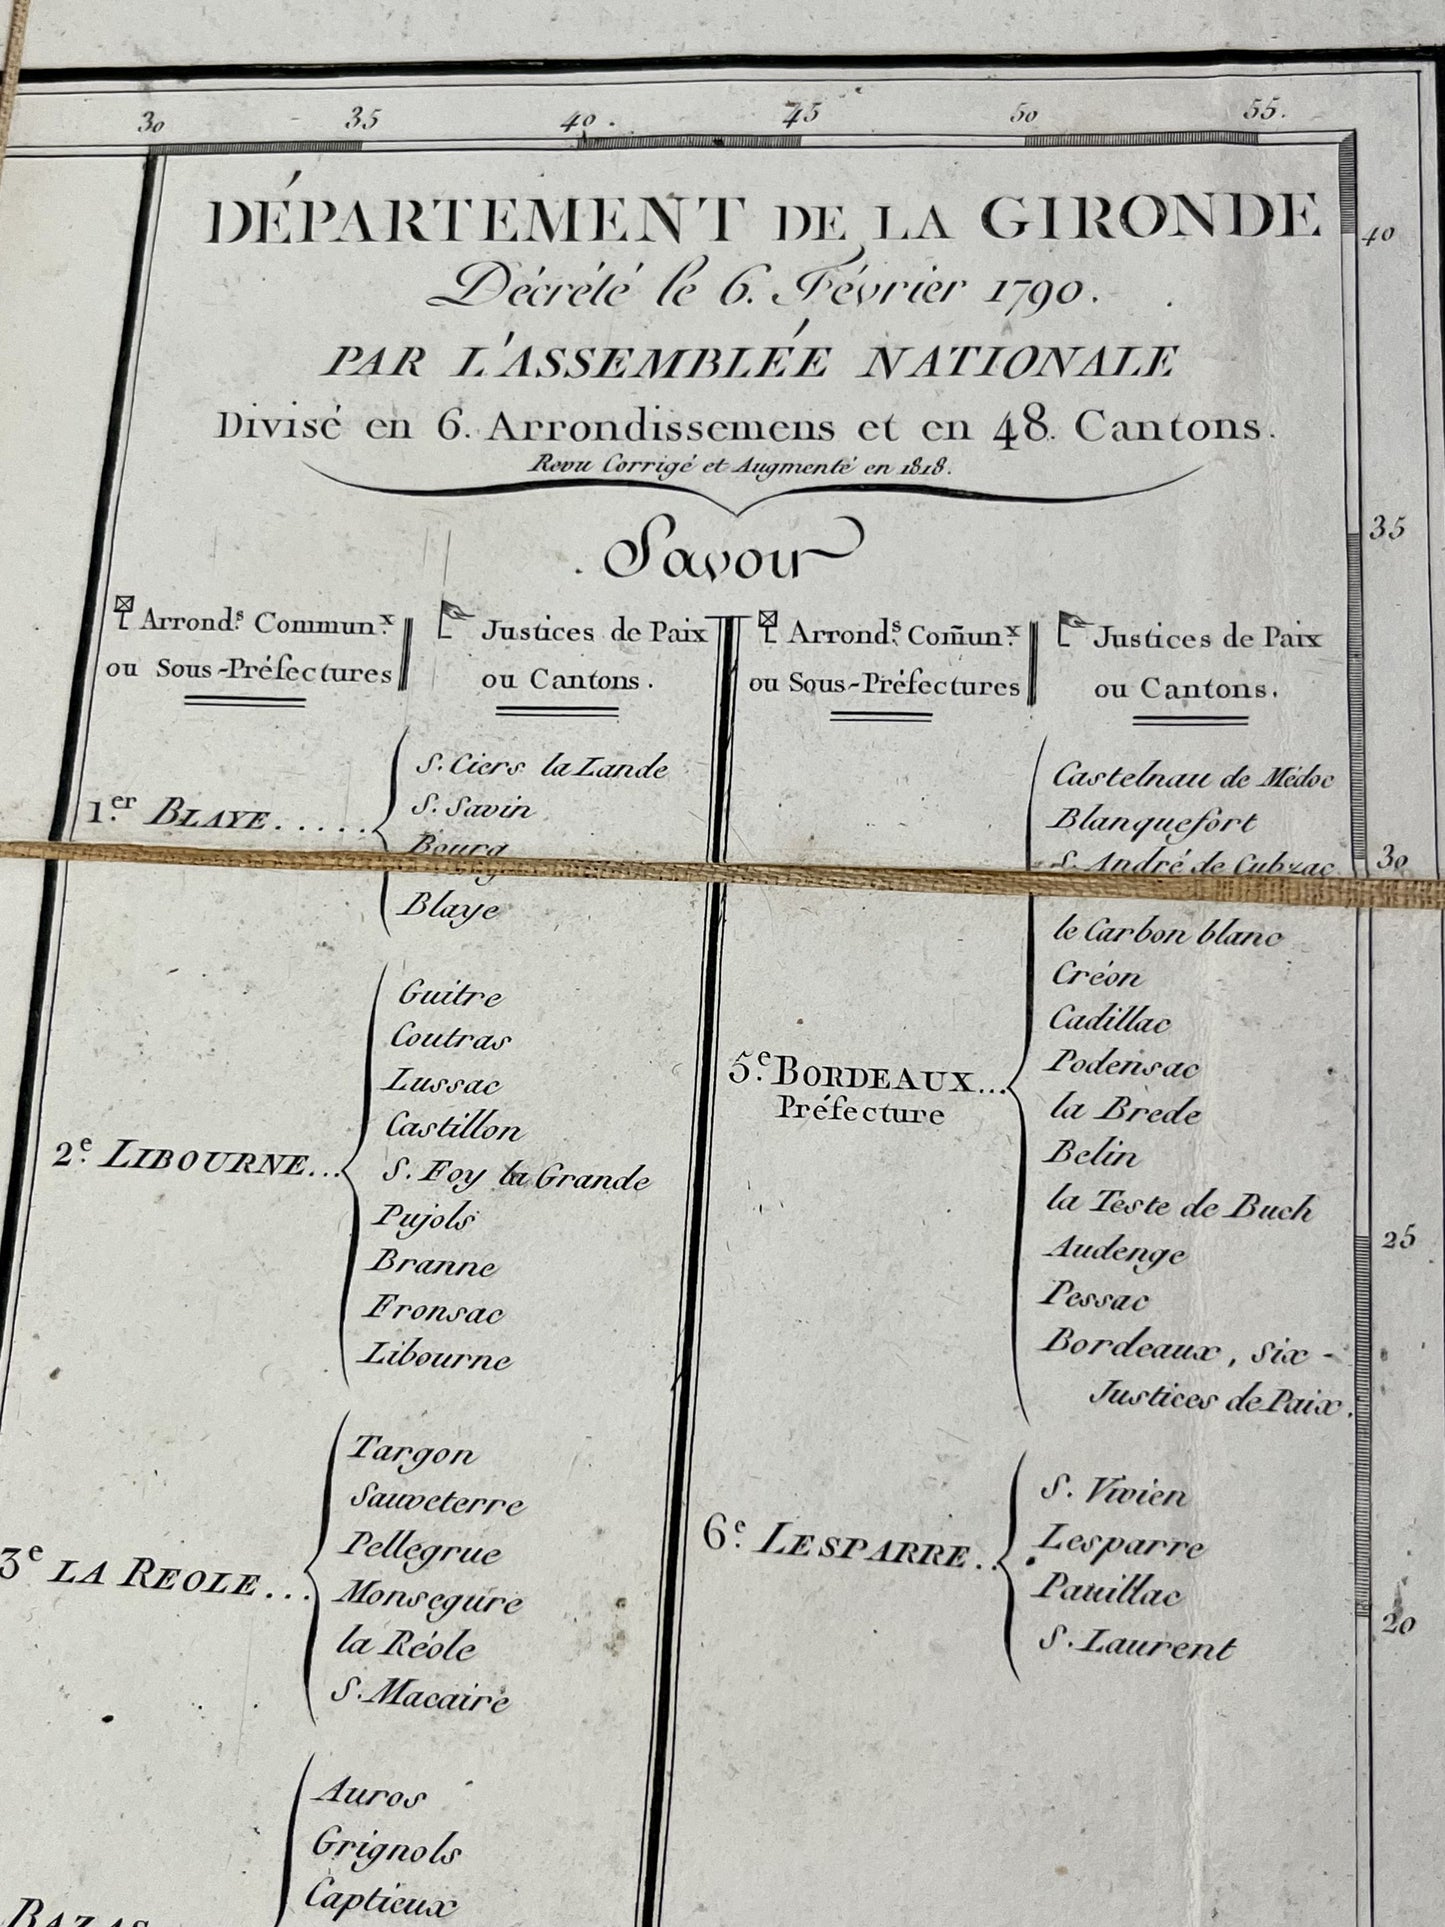 30 35 40 45 50 55.
DÉPARTEMENT DE LA GIRONDE
Décrété le 6. Février 1790.
PAR L'ASSEMBLÉE NATIONALE
Divisé en 6. Arrondissemens et en 48. Cantons.
Revu Corrigé et Augmenté en 1818.
Savoir
Arrond.s Commun.x
ou Sous-Préfectures
Justices de Paix
ou Cantons.
1.er BLAYE.....
S. Ciers la Lande
S. Savin
Bourg
Blaye
2.e LIBOURNE...
Guitre
Coutras
Lussac
Castillon
S. Foy la Grande
Pujols
Branne
Fronsac
Libourne
3e LA REOLE...
Targon
Sauveterre
Pellegrue
Monsegure
la Réole
S. Macaire
BAZAS
Auros
Grignols
Captieux
Arrond.s Com̃un.x
ou Sous-Préfectures
Justices de Paix
ou Cantons.
5.e BORDEAUX...
Préfecture
Castelnau de Médoc
Blanquefort
S. André de Cubzac
le Carbon blanc
Créon
Cadillac
Podensac
la Brede
Belin
la Teste de Buch
Audenge
Pessac
Bordeaux, six -
Justices de Paix.
6.e LESPARRE..
S. Vivien
Lesparre
Pauillac
S. Laurent
40
35
30
25
20